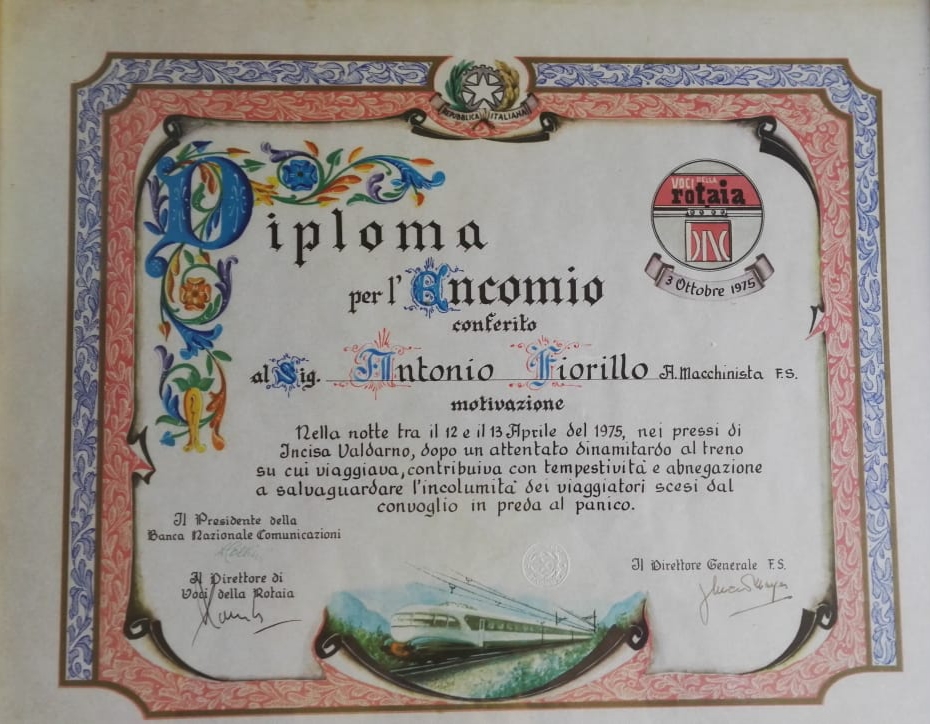 REPUBBLICA ITALIANA
VOCI DELLA
rotaia
BNC
3 Ottobre 1975
Diploma
per l'Encomio
conferito
al Sig. Antonio Fiorillo A. Macchinista F.S.
motivazione
Nella notte tra il 12 e il 13 Aprile del 1975, nei pressi di
Incisa Valdarno, dopo un attentato dinamitardo al treno
su cui viaggiava, contribuiva con tempestività e abnegazione
a salvaguardare l'incolumità dei viaggiatori scesi dal
convoglio in preda al panico.
Il Presidente della
Banca Nazionale Comunicazioni
Il Direttore di
Voci della Rotaia
Il Direttore Generale F.S.